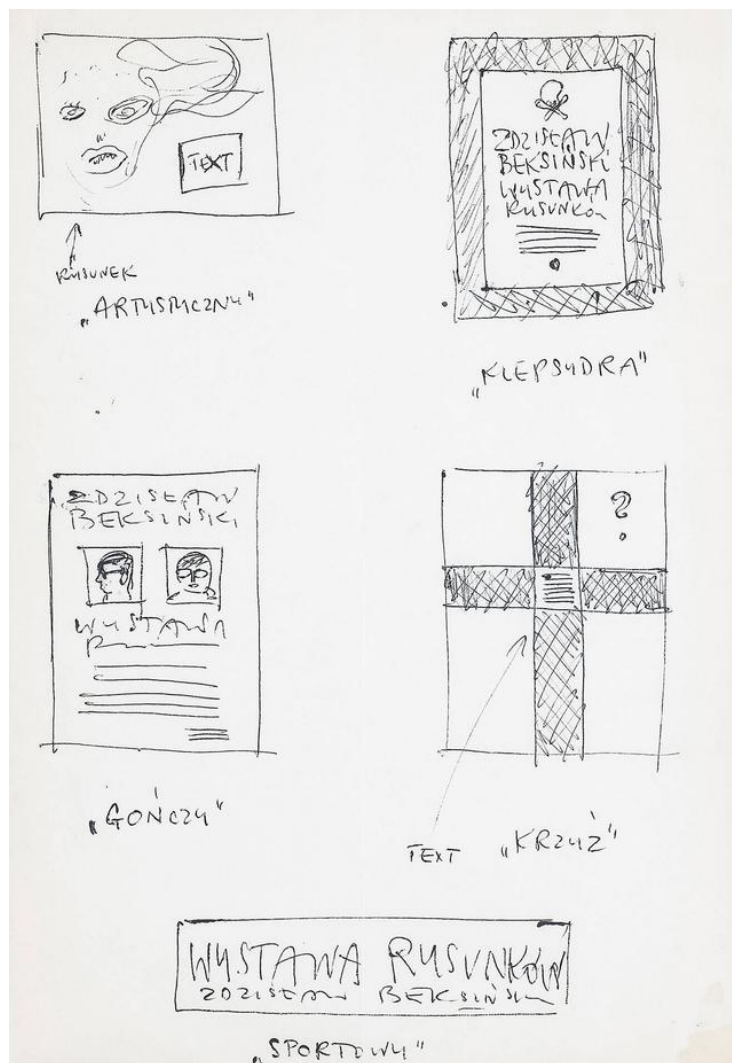 TEXT
RYSUNEK
„ARTYSTYCZNY"
ZDZISŁAW
BEKSIŃSKI
WYSTAWA
RYSUNKÓW
„KLEPSYDRA"
ZDZISŁAW
BEKSIŃSKI
WYSTAWA
„GOŃCZY"
?
TEXT
„KRZYŻ"
WYSTAWA RYSUNKÓW
ZDZISŁAW BEKSIŃSKI
„SPORTOWY"